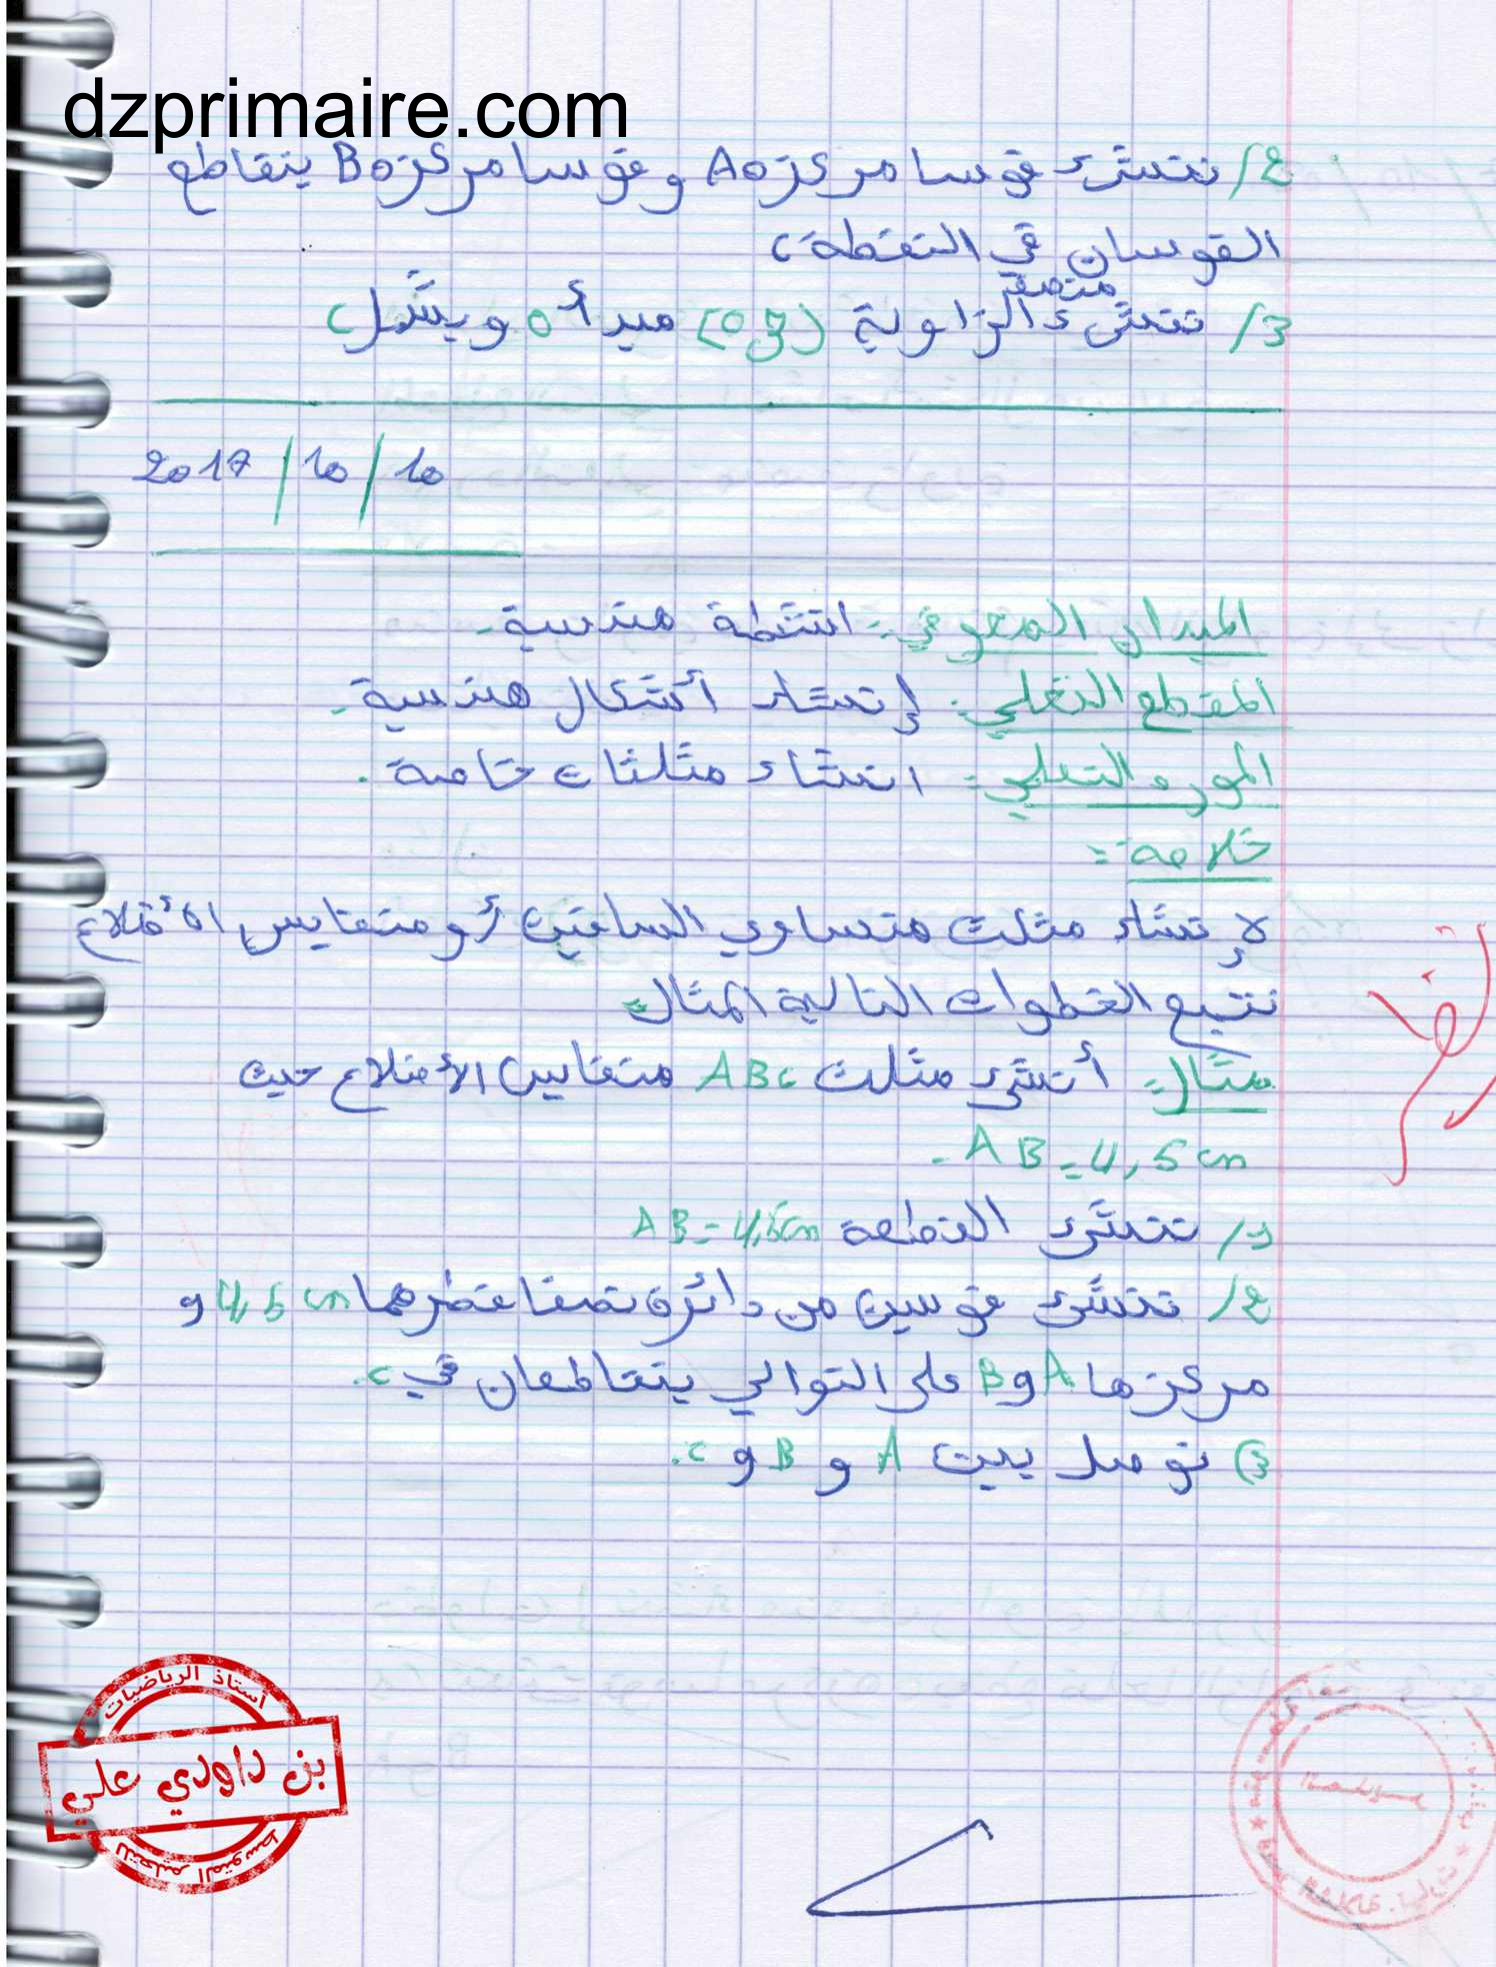 dzprimaire.com
2/ ننشئ قوسا مركزه A وقوسا مركزه B يتقاطع
القوسان في النقطة C
منصف
3/ ننشئ الزاوية مبدأ O ويشمل C
2017/10/10
الميدان المعرفي: انشطة هندسية.
المقطع التعلمي: إنشاء أشكال هندسية.
المورد التعلمي: انشاء مثلثات خاصة.
خلاصة:
لإنشاء مثلث متساوي الساقين أو متقايس الأضلاع
نتبع الخطوات التالية المثال
مثال: أنشئ مثلث ABC متقايس الأضلاع حيث
AB = 4,5 cm.
1/ ننشئ القطعة AB = 4,5cm
2/ ننشئ قوسين من دائرة نصفا قطرهما 4,5 cm و
مركزها A و B على التوالي يتقاطعان في C.
3) نوصل بين A و B و C.
أستاذ الرياضيات
بن داودي علي
للتعليم المتوسط